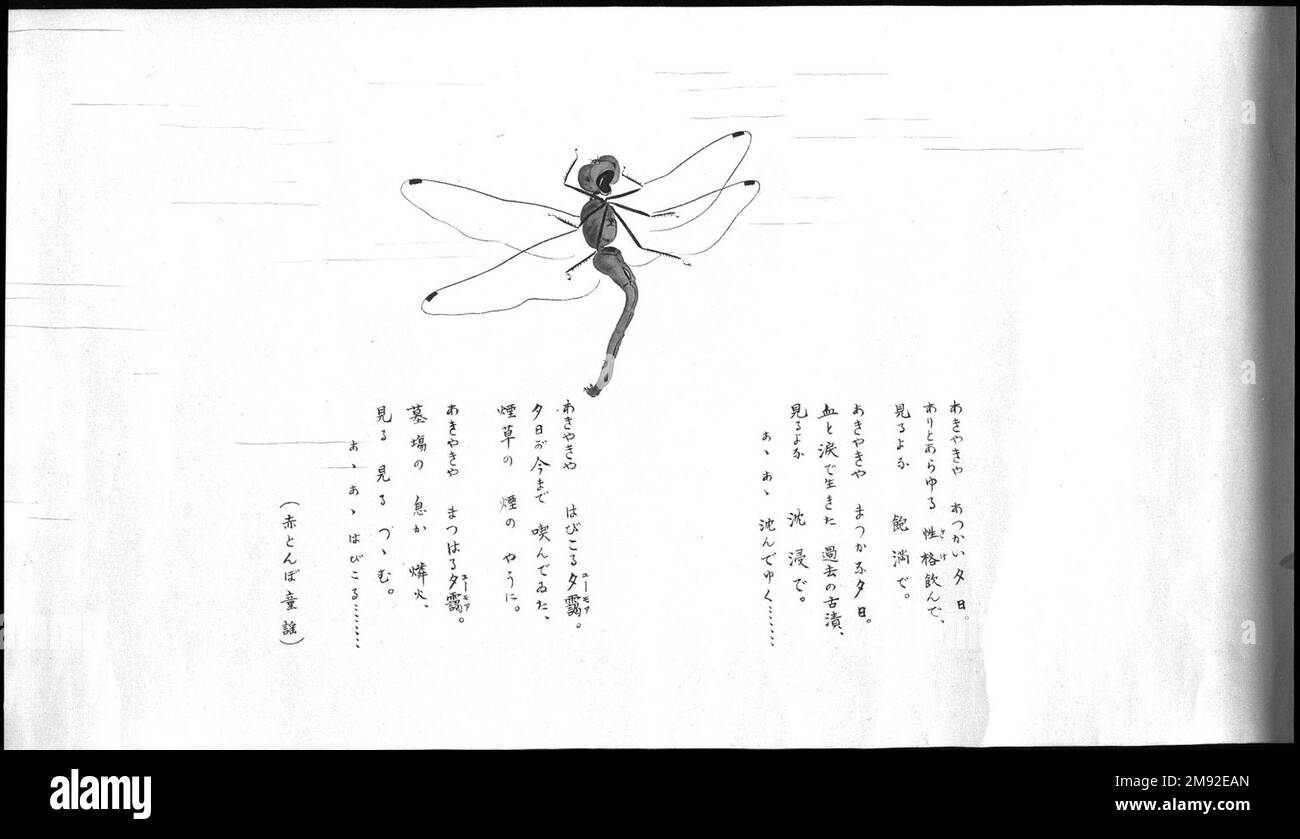 あきやきや　あつかい夕日。
ありとあらゆる　性格飲んで、
さけ
見るよな　飽満で。
あきやきや　まつかな夕日。
血と涙で生きた　過去の古漬、
見るよな　沈浸で。
あゝあゝ　沈んでゆく……
あきやきや　はびこる夕靄。
ユーモア
夕日が今まで　喫んでゐた、
煙草の　煙の　やうに。
あきやきや　まつはる夕靄。
ユーモア
墓場の　息か　燐火、
見る　見る　つゝむ。
あゝあゝ　はびこる……
（赤とんぼ童謡）
a
a
a
alamy
Image ID: 2M92EAN
www.alamy.com